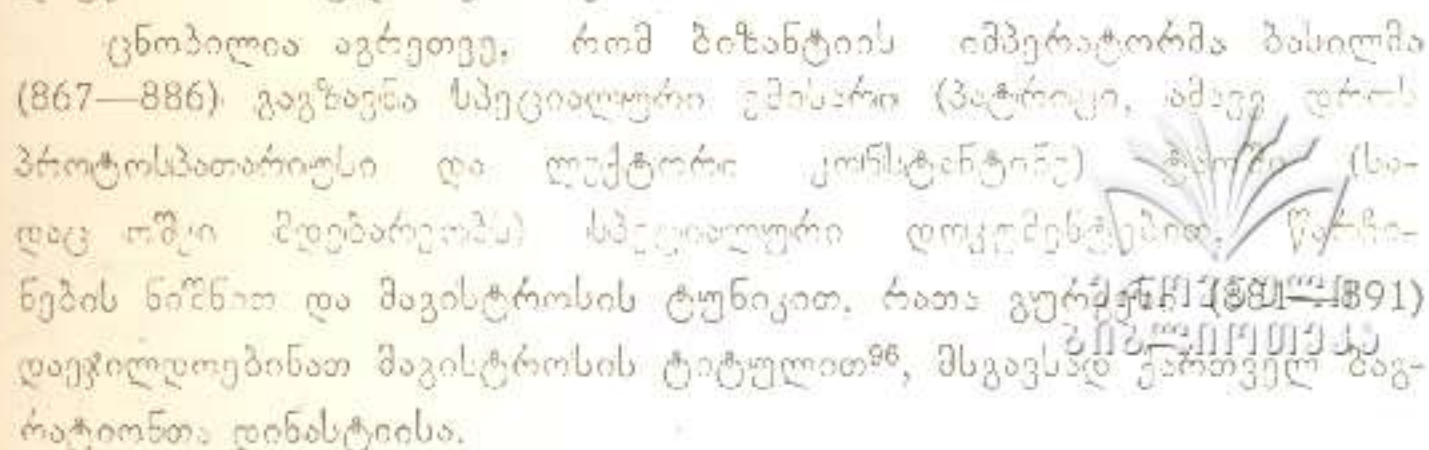 ცნობილია აგრეთვე, რომ ბიზანტიის იმპერატორმა ბასილმა
(867—886) გაგზავნა სპეციალური ემისარი (პატრიკი, ამავე დროს
პროტოსპათარიუსი და ლექტორი კონსტანტინე) ტაოში (სა-
დაც ოშკი მდებარეობს) სპეციალური დოკუმენტებით, წარჩი-
ნების ნიშნით და მაგისტროსის ტუნიკით, რათა გურგენი (881—891)
დაეჯილდოებინათ მაგისტროსის ტიტულით⁹⁶, მსგავსად ქართველ ბაგ-
რატიონთა დინასტიისა.
ეროვნული
ბიბლიოთეკა